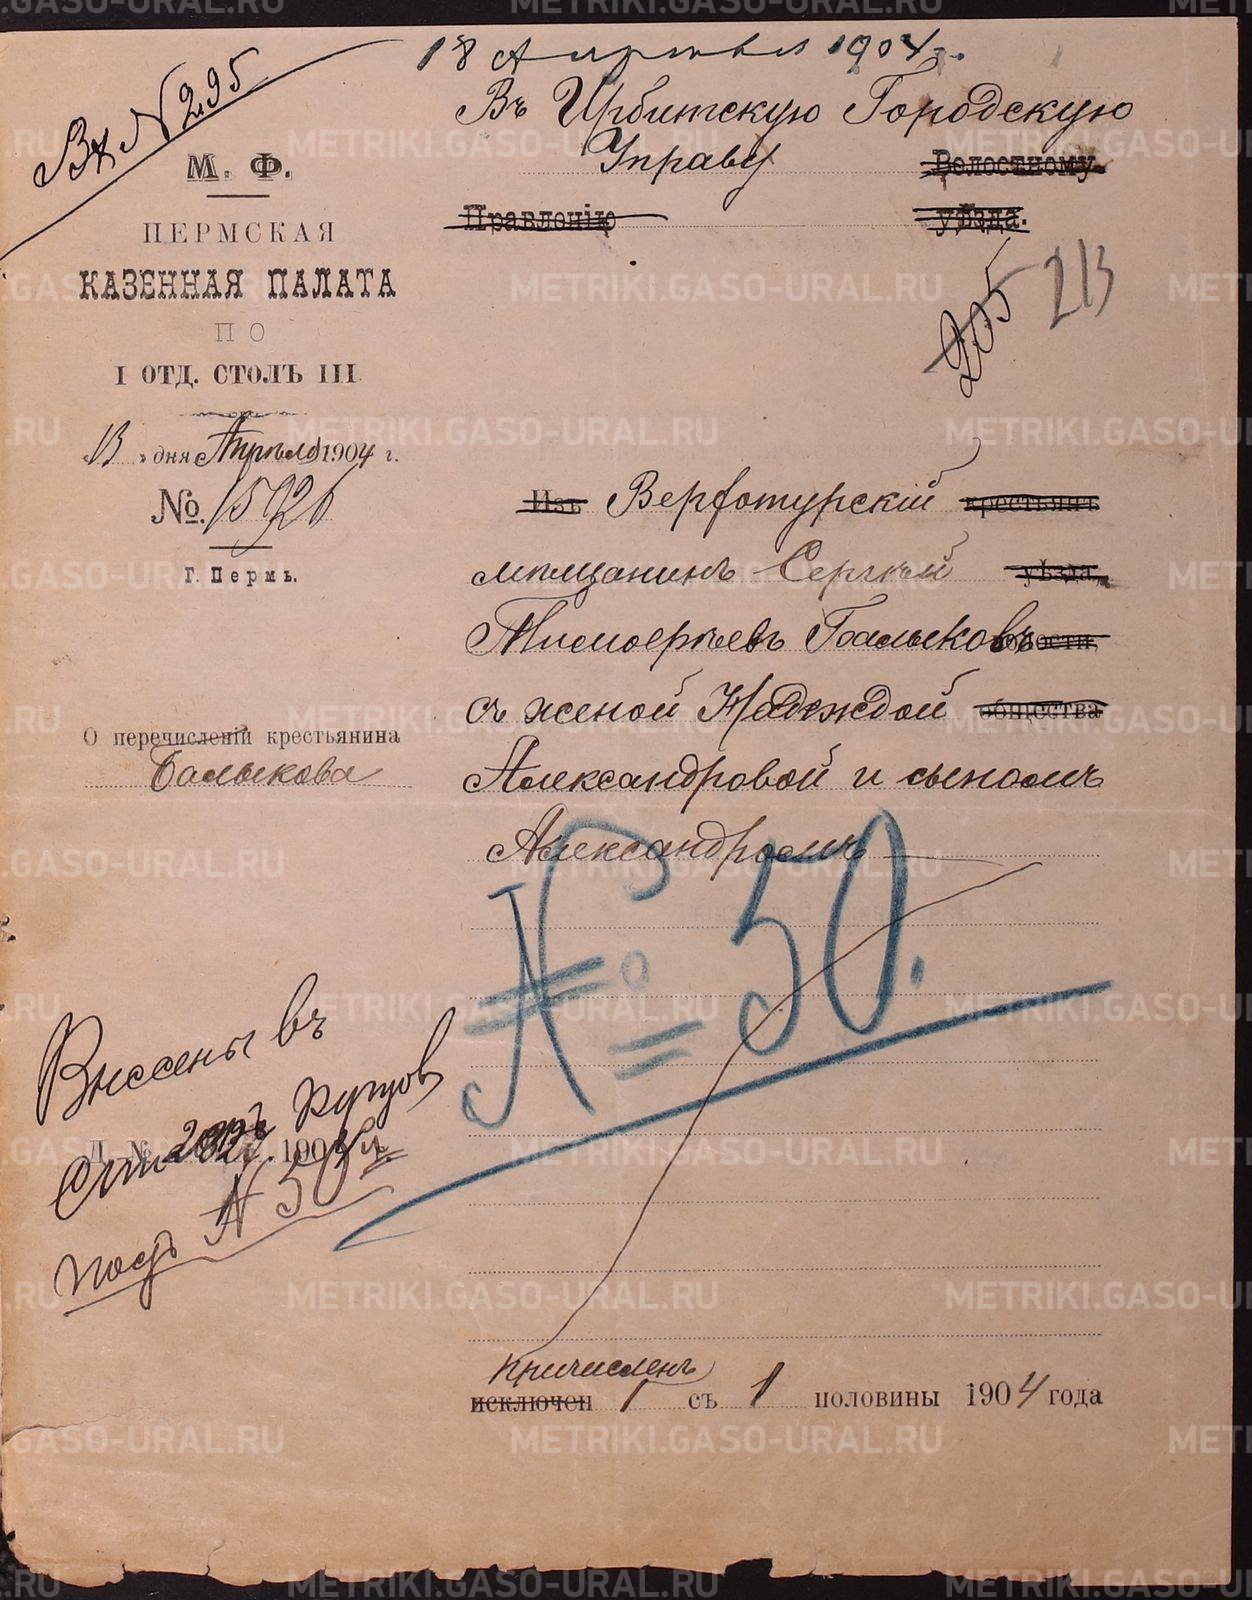 18 Апреля 1904 г.
Вх № 295
Въ Ирбитскую Городскую
Управу Волостному
Правленію уѣзда.
М. Ф.
ПЕРМСКАЯ
КАЗЕННАЯ ПАЛАТА
ПО
I ОТД. СТОЛЪ III
205 213
«13» дня Апрѣля 1904 г.
№. 15926
Г. Пермь.
Изъ Верхотурскій крестьянъ
мѣщанинъ Сергѣй уѣзда,
Тимоѳеевъ Балыковъ волости,
съ женой Надеждой общества
Александровой и сыномъ
Александромъ
О перечисленіи крестьянина
Балыкова
№ 50.
Внесены въ
Д. № 190
подъ № 50
причисленъ
исключен 1 съ 1 половины 1904 года
METRIKI.GASO-URAL.RU